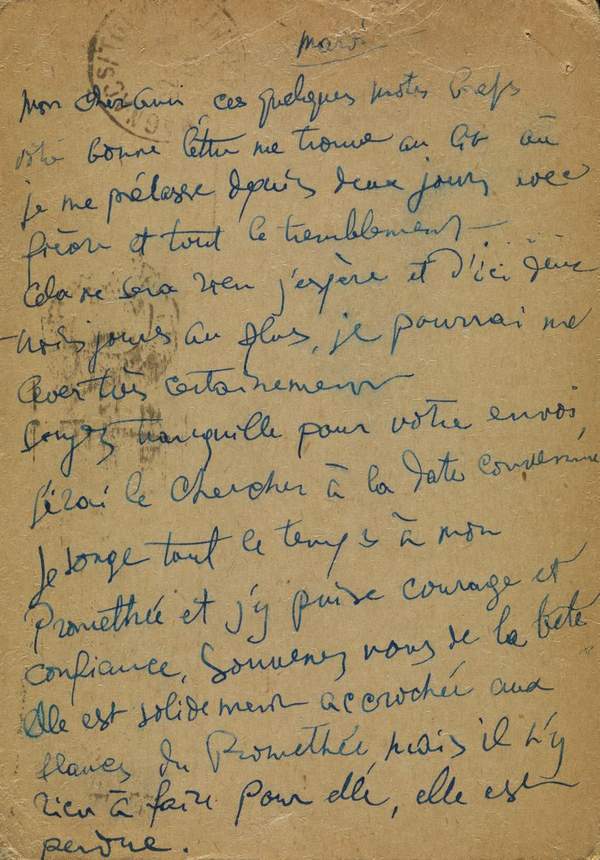 mardi
Mon cher ami ces quelques mots brefs
votre bonne lettre me trouve au lit où
je me prélasse depuis deux jours avec
fièvre et tout le tremblement
Cela ne sera rien j'espère et d'ici deux
trois jours au plus, je pourrai me
lever très certainement
Soyez tranquille pour votre envoi,
j'irai le chercher à la date convenue
Je songe tout le temps à mon
Promethée et j'y puise courage et
confiance, Souvenez vous de la bête
elle est solidement accrochée aux
flancs du Promethée, mais il n'y
rien à faire pour elle, elle est
perdue.